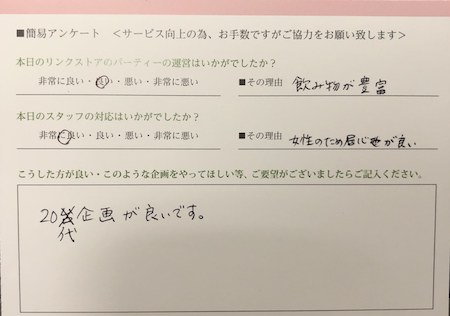 ■簡易アンケート ＜サービス向上の為、お手数ですがご協力をお願い致します＞
本日のリンクストアのパーティーの運営はいかがでしたか？
非常に良い・良い・悪い・非常に悪い ■その理由 飲み物が豊富
本日のスタッフの対応はいかがでしたか？
非常に良い・良い・悪い・非常に悪い ■その理由 女性のため居心地が良い
こうした方が良い・このような企画をやってほしい等、ご要望がございましたらご記入ください。
20代企画が良いです。